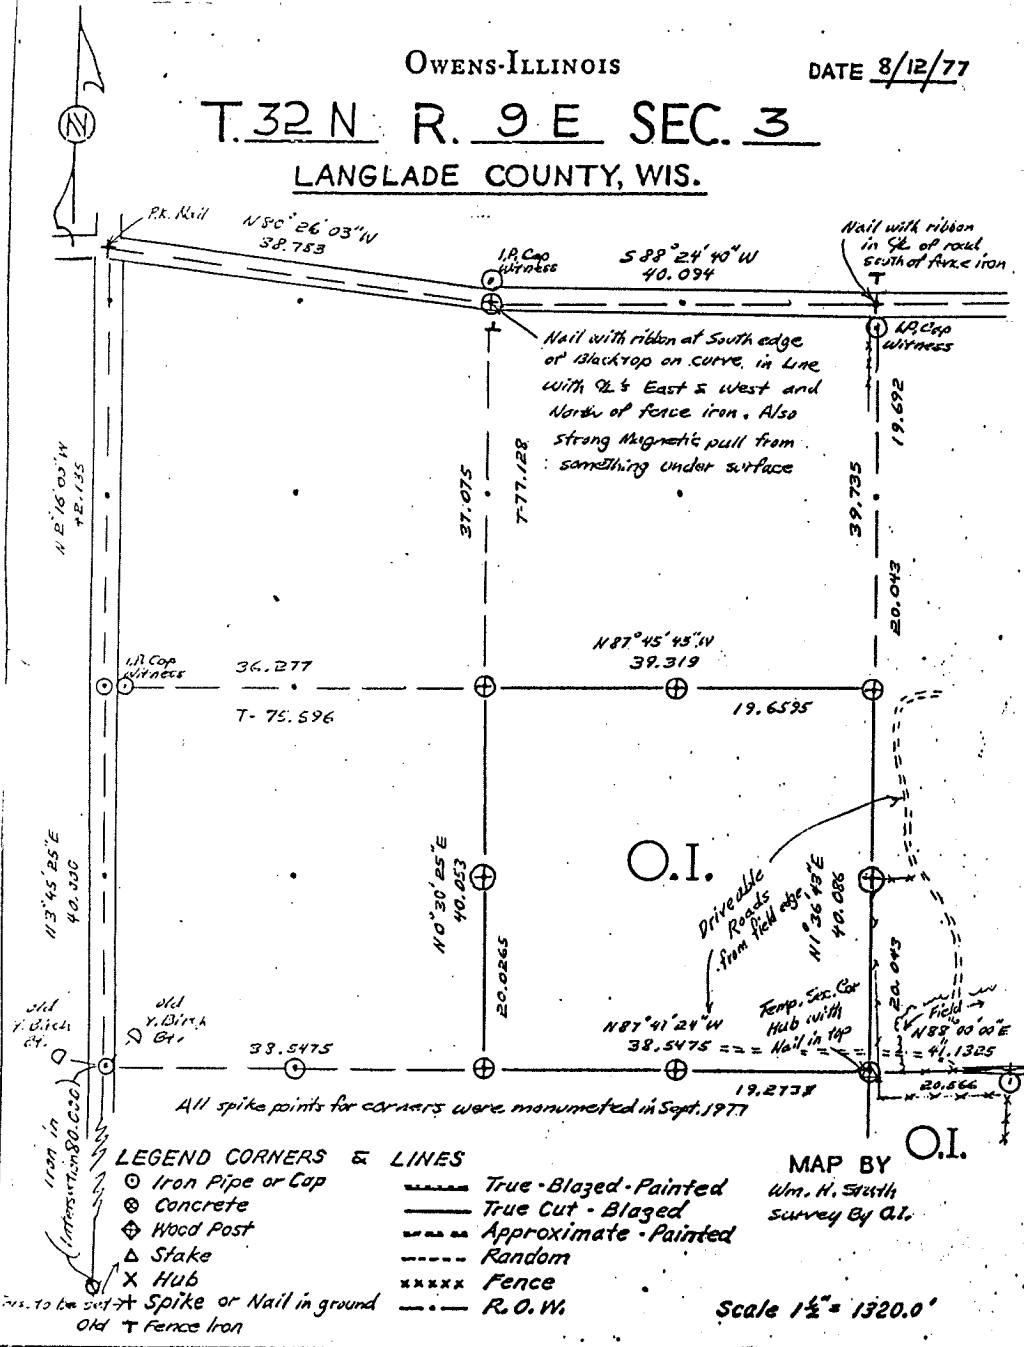 OWENS-ILLINOIS
DATE 8/12/77
T. 32 N R. 9 E SEC. 3
LANGLADE COUNTY, WIS.
N
P.K. Nail
N 80° 26' 03" W
38.753
I.P. Cap
Witness
S 88° 24' 40" W
40.094
Nail with ribbon
in ℄ of road
south of fence iron
I.P. Cap
Witness
Nail with ribbon at South edge
of Blacktop on curve, in Line
with ℄'s East & West and
North of fence iron. Also
strong Magnetic pull from
something under surface
N 2° 16' 05" W
42.135
37.075
T-77.128
19.692
39.735
20.043
I.P. Cap
Witness
36.277
T- 75.596
N 87° 45' 45" W
39.319
19.6595
N 3° 45' 25" E
40.000
N 0° 30' 25" E
40.053
20.0265
O.I.
Driveable
Roads
from field edge
N 1° 36' 43" E
40.086
20.043
old
Y. Birch
Bt.
old
Y. Birch
Bt.
38.5475
N 87° 41' 24" W
38.5475
19.2738
Temp. Sec. Cor
Hub with
Nail in top
Field
N 88° 00' 00" E
41.1325
20.566
All spike points for corners were monumented in Sept. 1977
O.I.
Iron in
(Intersection 80.000)
LEGEND CORNERS & LINES
Iron Pipe or Cap
Concrete
Wood Post
Stake
X Hub
to be set
Spike or Nail in ground
Old T Fence Iron
True - Blazed - Painted
True Cut - Blazed
Approximate - Painted
Random
xxxxx Fence
R.O.W.
MAP BY
Wm. H. Smith
Survey By O.I.
Scale 1½" = 1320.0'